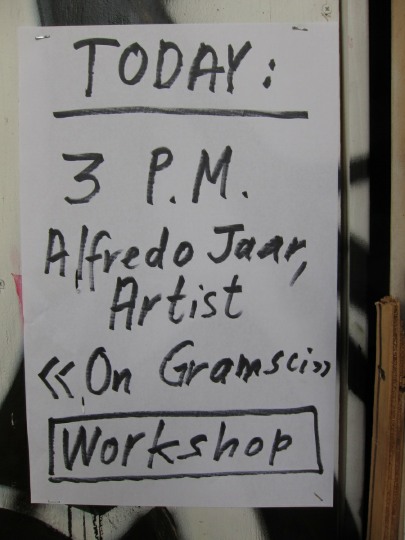 TODAY:
3 P.M.
Alfredo Jaar,
Artist
«On Gramsci»
Workshop